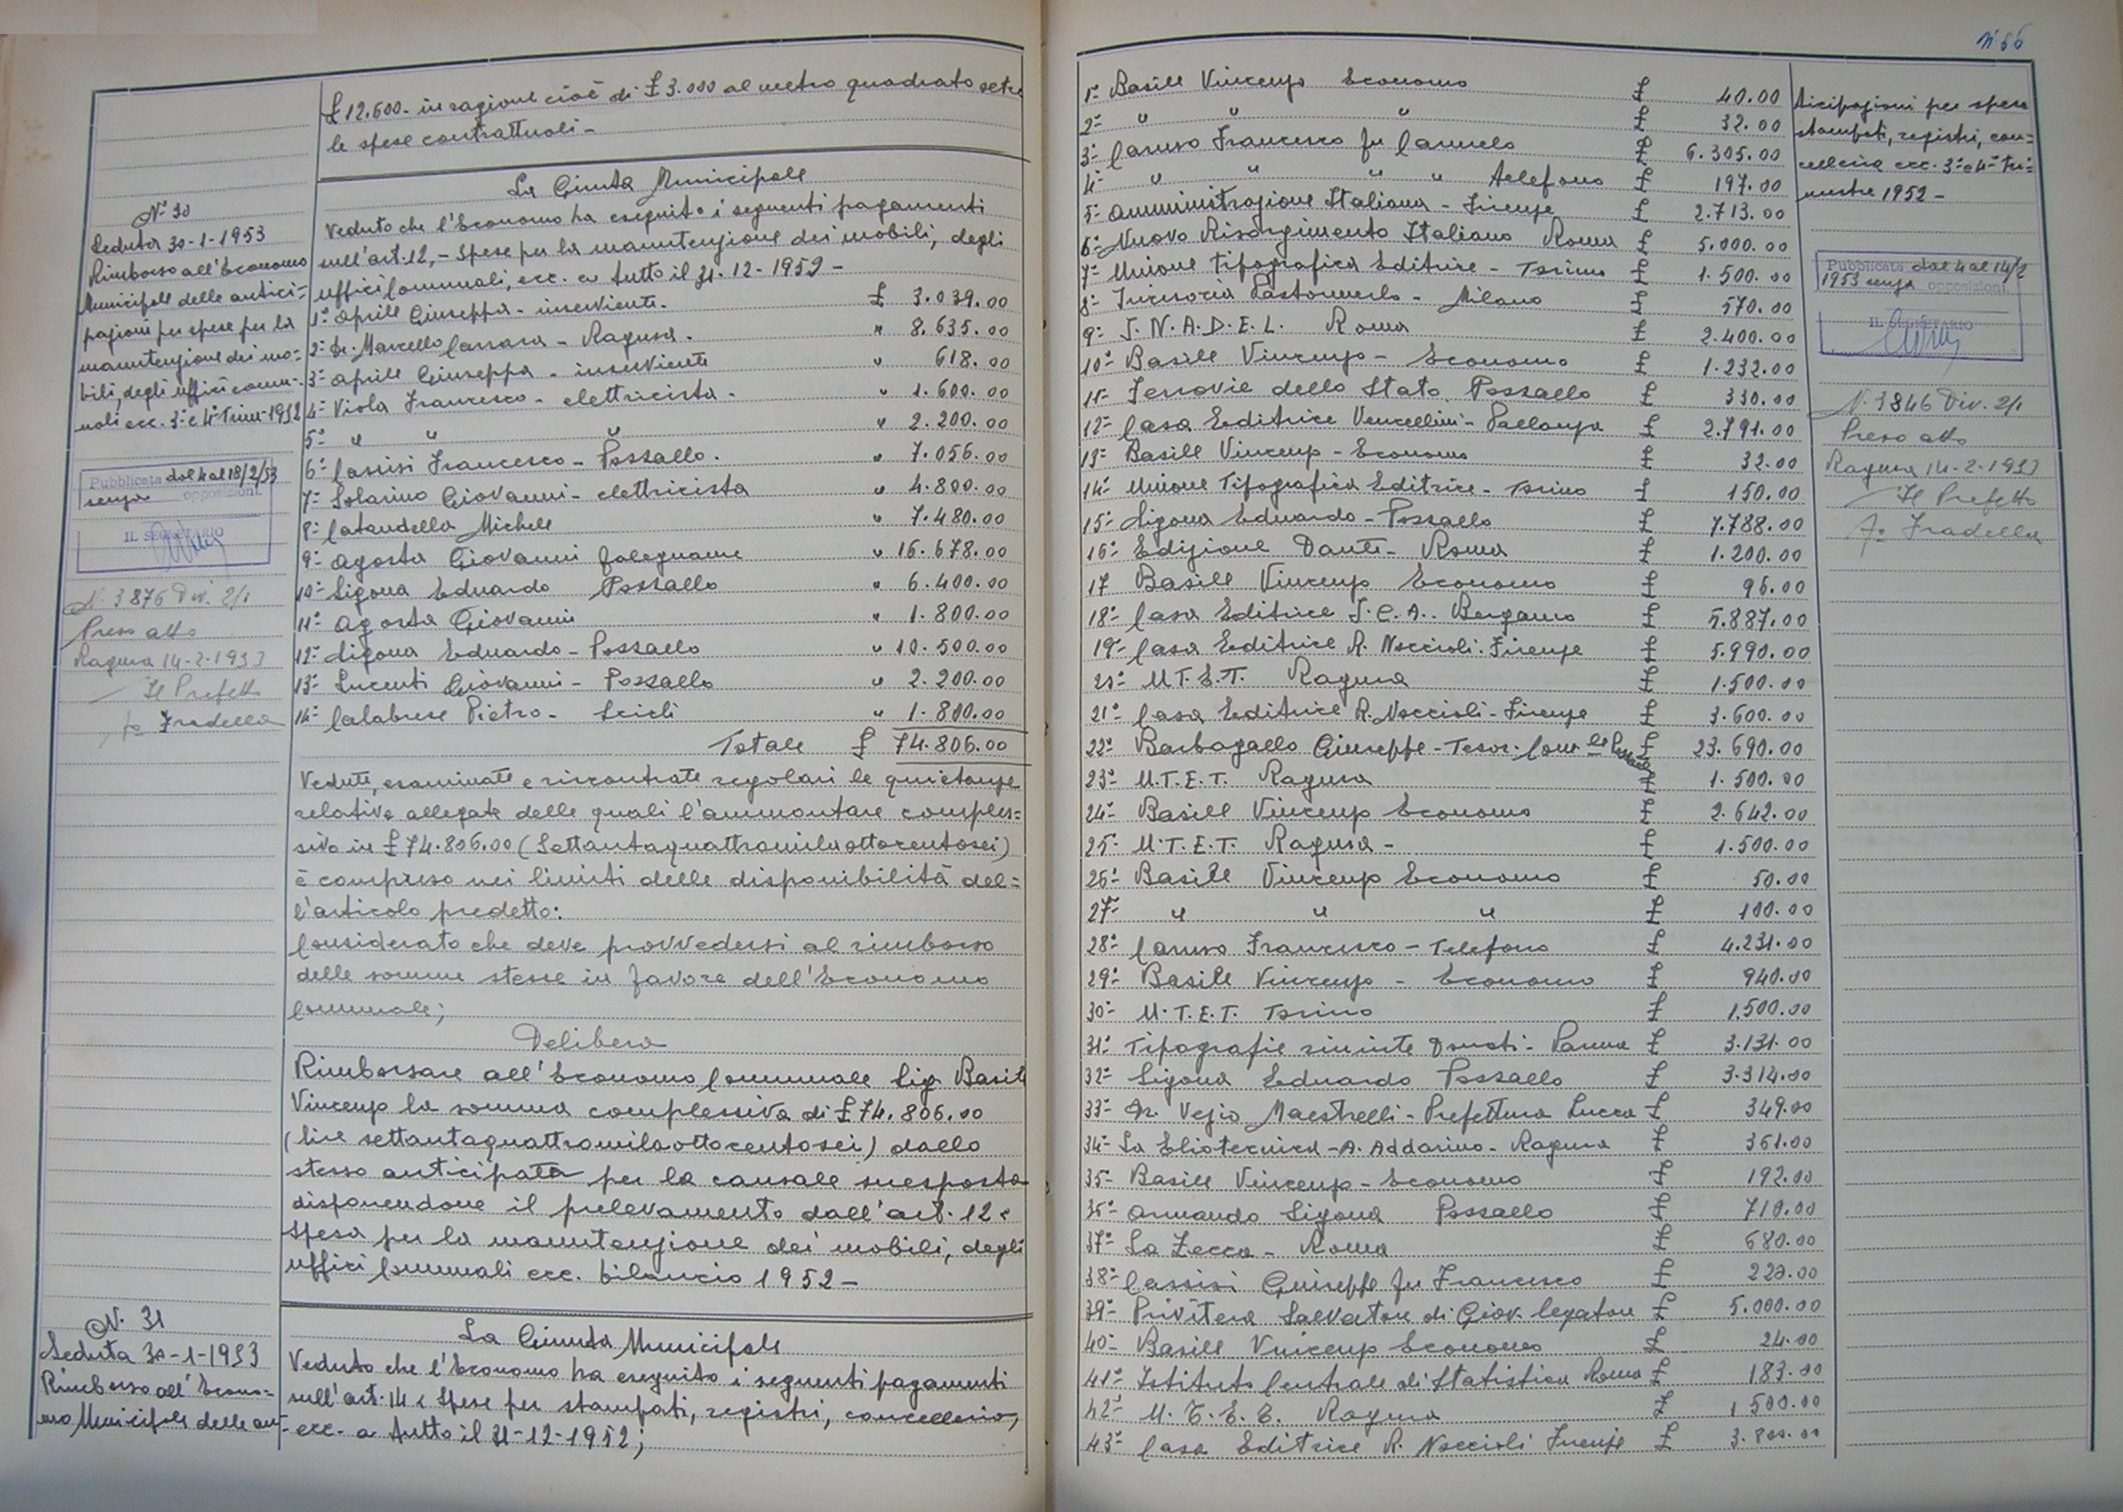 £ 12.600- in ragione cioè di £ 3.000 al metro quadrato oltre
le spese contrattuali-
N° 30
Seduta 30-1-1953
Rimborso all'Economo
Municipale delle antici=
pazioni per spese per la
manutenzione dei mo=
bili, degli uffici comu-
nali ecc. 3° e 4° Trim-1952
Pubblicata dal 4 al 18/2/53
senza opposizioni.
IL SEGRETARIO
N. 3876 Div. 2/1
Preso atto
Ragusa 14-2-1953
Il Prefetto
fo Fradella
La Giunta Municipale
Veduto che l'Economo ha eseguito i seguenti pagamenti
sull'art. 12,- Spese per la manutenzione dei mobili, degli
uffici Comunali, ecc. a tutto il 31-12-1952-
1° Aprile Giuseppa - inserviente. £ 3.039.00
2- Dr. Marcello Carrara - Ragusa. " 8.635.00
3- Aprile Giuseppa - inserviente " 618.00
4- Viola Francesco - elettricista. " 1.600.00
5° " " " " 2.200.00
6- Cassisi Francesco - Pozzallo. " 7.056.00
7- Solarino Giovanni - elettricista " 4.800.00
8- Cataudella Michele " 7.480.00
9- Agosta Giovanni falegname " 16.678.00
10- Sigona Eduardo Pozzallo " 6.400.00
11- Agosta Giovanni " 1.800.00
12- Sigona Eduardo - Pozzallo " 10.500.00
13- Lucenti Giovanni - Pozzallo " 2.200.00
14- Calabrese Pietro - Scicli " 1.800.00
Totale £ 74.806.00
Vedute, esaminate e riscontrate regolari le quietanze
relative allegate delle quali l'ammontare comples=
sivo in £ 74.806.00 (Settantaquattromilaottocentosei)
è compreso nei limiti delle disponibilità del=
l'articolo predetto:
Considerato che deve provvedersi al rimborso
delle somme stesse in favore dell'Economo
Comunale;
Delibera
Rimborsare all'Economo Comunale Sig. Basile
Vincenzo la somma complessiva di £ 74.806.00
(lire settantaquattromilaottocentosei) dallo
stesso anticipata per la causale suesposta
disponendone il prelevamento dall'art. 12 "
Spesa per la manutenzione dei mobili, degli
uffici Comunali ecc. bilancio 1952-
N. 31
Seduta 30-1-1953
Rimborso all'Econo-
mo Municipale delle an-
La Giunta Municipale
Veduto che l'Economo ha eseguito i seguenti pagamenti
sull'art. 14 " Spese per stampati, registri, cancelleria,
ecc. a tutto il 31-12-1952;
N. 56
1- Basile Vincenzo Economo £ 40.00
2- " " " £ 32.00
3- Caruso Francesco fu Carmelo £ 6.305.00
4- " " " " telefono £ 197.00
5- Amministrazione Italiana - Firenze £ 2.713.00
6- Nuovo Risorgimento Italiano Roma £ 5.000.00
7- Unione tipografica Editrice - Torino £ 1.500.00
8- - Milano £ 570.00
9- I.N.A.D.E.L. Roma £ 2.400.00
10- Basile Vincenzo - Economo £ 1.232.00
11- Ferrovie dello Stato Pozzallo £ 330.00
12- Casa Editrice Vercellini - Pallanza £ 2.791.00
13- Basile Vincenzo - Economo £ 32.00
14- Unione Tipografica Editrice - Torino £ 150.00
15- Sigona Eduardo - Pozzallo £ 7.788.00
16- Edizione Dante - Roma £ 1.200.00
17 Basile Vincenzo Economo £ 96.00
18- Casa Editrice I.C.A.. Bergamo £ 5.887.00
19- Casa Editrice R. Noccioli. Firenze £ 5.990.00
20- U.T.E.T. Ragusa £ 1.500.00
21° Casa Editrice R. Noccioli - Firenze £ 3.600.00
22° Barbagallo Giuseppe - Tesor. Com. £ 23.690.00
23- U.T.E.T. Ragusa £ 1.500.00
24- Basile Vincenzo Economo £ 2.642.00
25- U.T.E.T. Ragusa - £ 1.500.00
26- Basile Vincenzo Economo £ 50.00
27- " " " £ 100.00
28° Caruso Francesco - Telefono £ 4.231.00
29° Basile Vincenzo - Economo £ 940.00
30- U.T.E.T. Torino £ 1.500.00
31- Tipografie riunite Donati - Parma £ 3.131.00
32- Sigona Eduardo Pozzallo £ 3.314.00
33- Dr. Vezio Maestrelli - Prefettura Lucca £ 349.00
34- La Eliotecnica - A. Addario - Ragusa £ 361.00
35- Basile Vincenzo - Economo £ 192.00
36- Armando Sigona Pozzallo £ 710.00
37° La Zecca - Roma £ 680.00
38- Cassisi Giuseppe fu Francesco £ 220.00
39- Privitera Salvatore di Giov. legatore £ 5.000.00
40- Basile Vincenzo Economo £ 24.00
41° Istituto Centrale di Statistica Roma £ 183.00
42- U.T.E.T. Ragusa £ 1.500.00
43- Casa Editrice R. Noccioli Firenze £ 3.800.00
ticipazioni per spese
stampati, registri, can=
celleria ecc. 3° e 4° Tri=
mestre 1952-
Pubblicata dal 4 al 14/2
1953 senza opposizioni.
IL SEGRETARIO
N. 3846 Div. 2/1
Preso atto
Ragusa 14-2-1953
Il Prefetto
fo Fradella